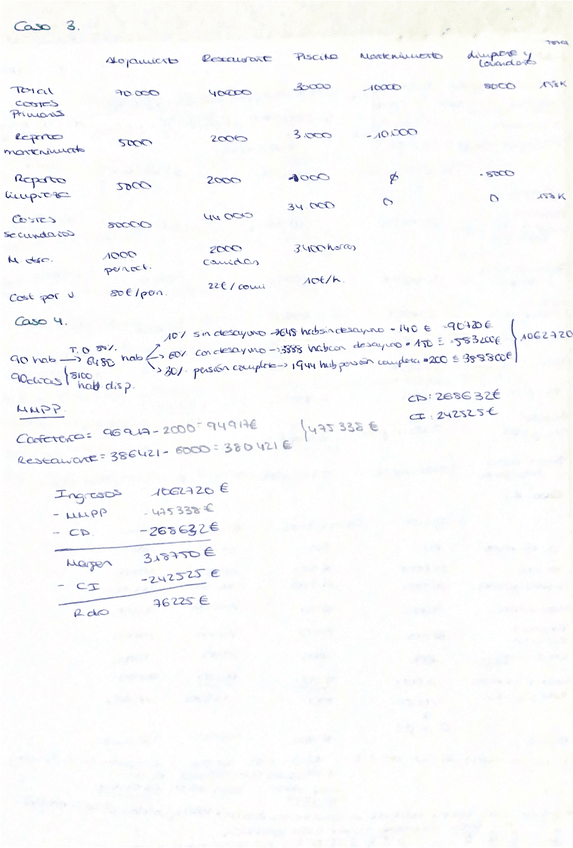 Caso 3.
TOTAL
Alojamiento Restaurante Piscina Mantenimiento Limpieza y lavandería
Total costes Primarios 70.000 40.000 30000 10000 8000 158K
Reparto mantenimiento 5000 2000 3.000 -10.000
Reparto limpieza 5000 2000 1000 ∅ -8000
Costes secundarios 80000 44 000 34 000 0 0 158K
1000 pernoct. 2000 comidas 3400 horas
Cost por U 80€/pern. 22€/comi 10€/h.
Caso 4.
10% sin desayuno → 648 hab sin desayuno · 140 € = 90720€
90 hab T.O 80% → 6480 hab 60% con desayuno → 3888 hab con desayuno · 150 = 583200€ 1062720
90 días 8100 hab disp. 30% pensión completa → 1944 hab pensión completa · 200 = 388800€
MMPP. CD: 268632€
CI: 242525€
Cafetería = 96917 - 2000 = 94917€
475338 €
Restaurante = 386421 - 6000 = 380421 €
Ingresos 1062720 €
- MMPP -475338€
- CD. -268632€
Margen 318750 €
- CI -242525 €
Rdo 76225 €